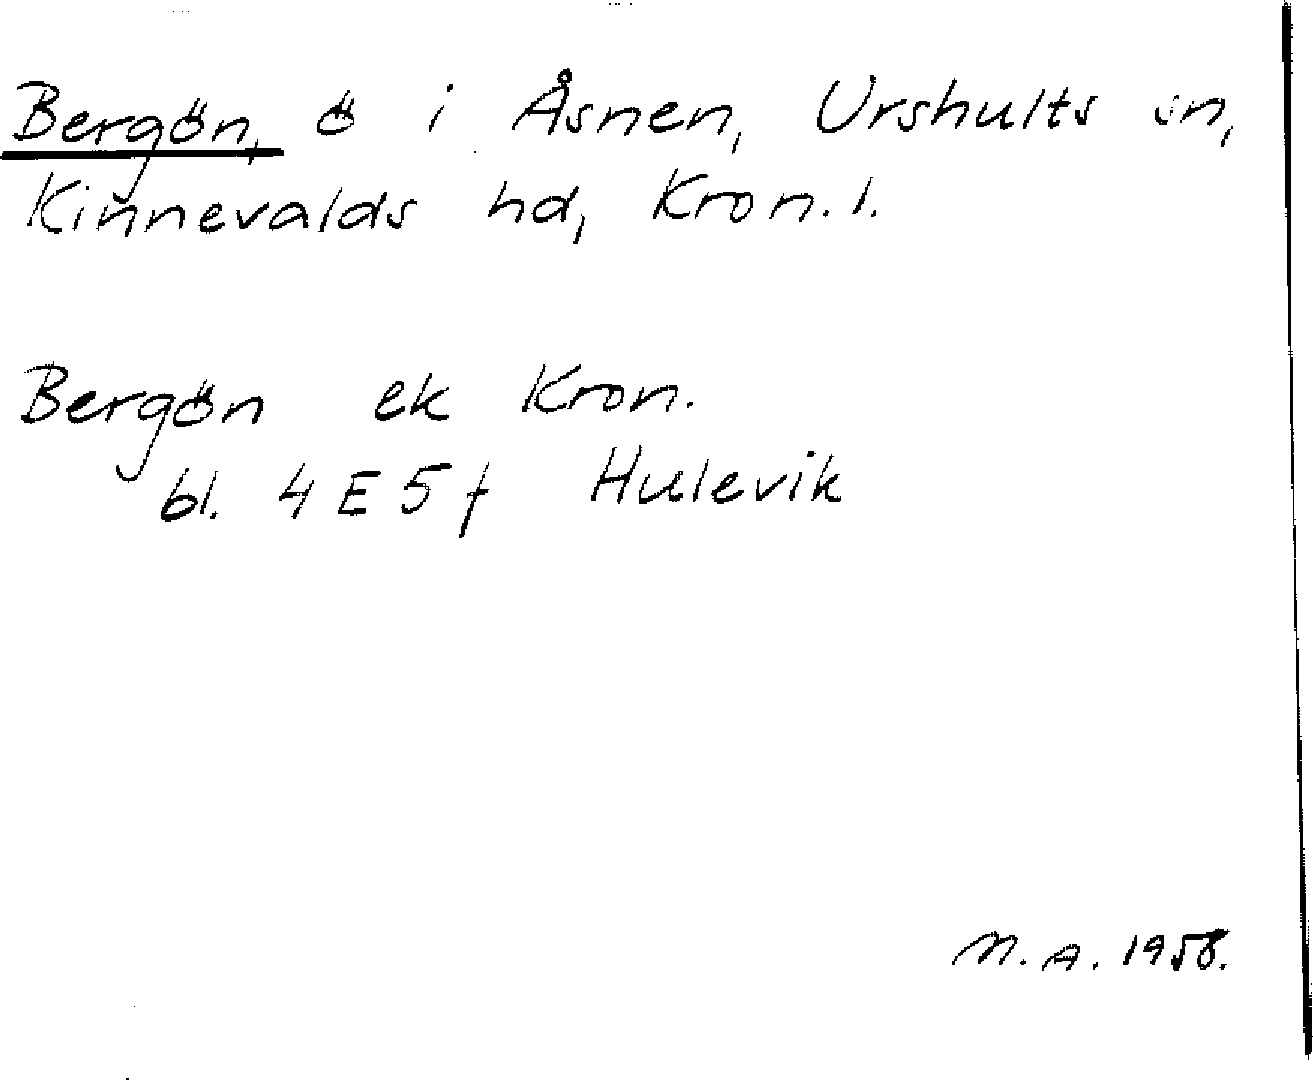 Bergön, ö i Åsnen, Urshults sn,
Kinnevalds hd, Kron. l.
Bergön ek Kron.
bl. 4 E 5 f Hulevik
N. A. 1958.